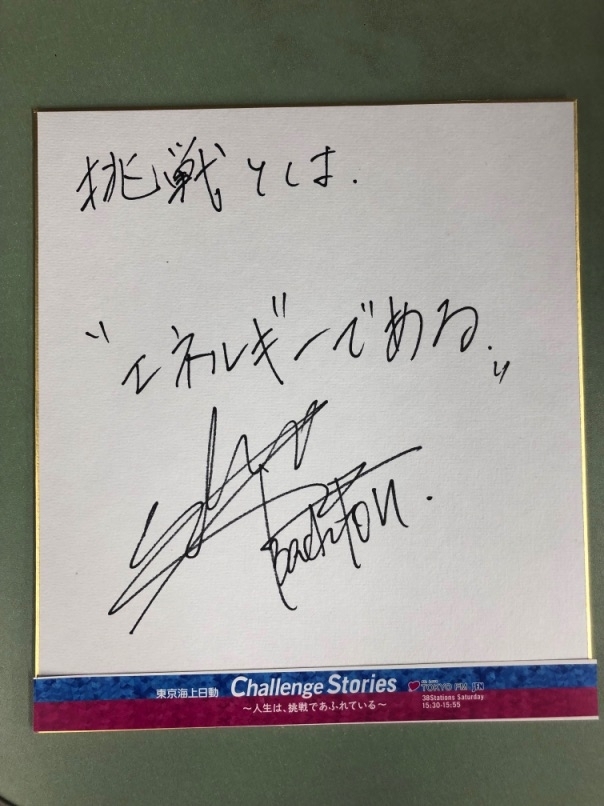 挑戦とは.
"エネルギーである."
東京海上日動 Challenge Stories TOKYO FM JFN
38Stations Saturday
～人生は、挑戦であふれている～ 15:30-15:55